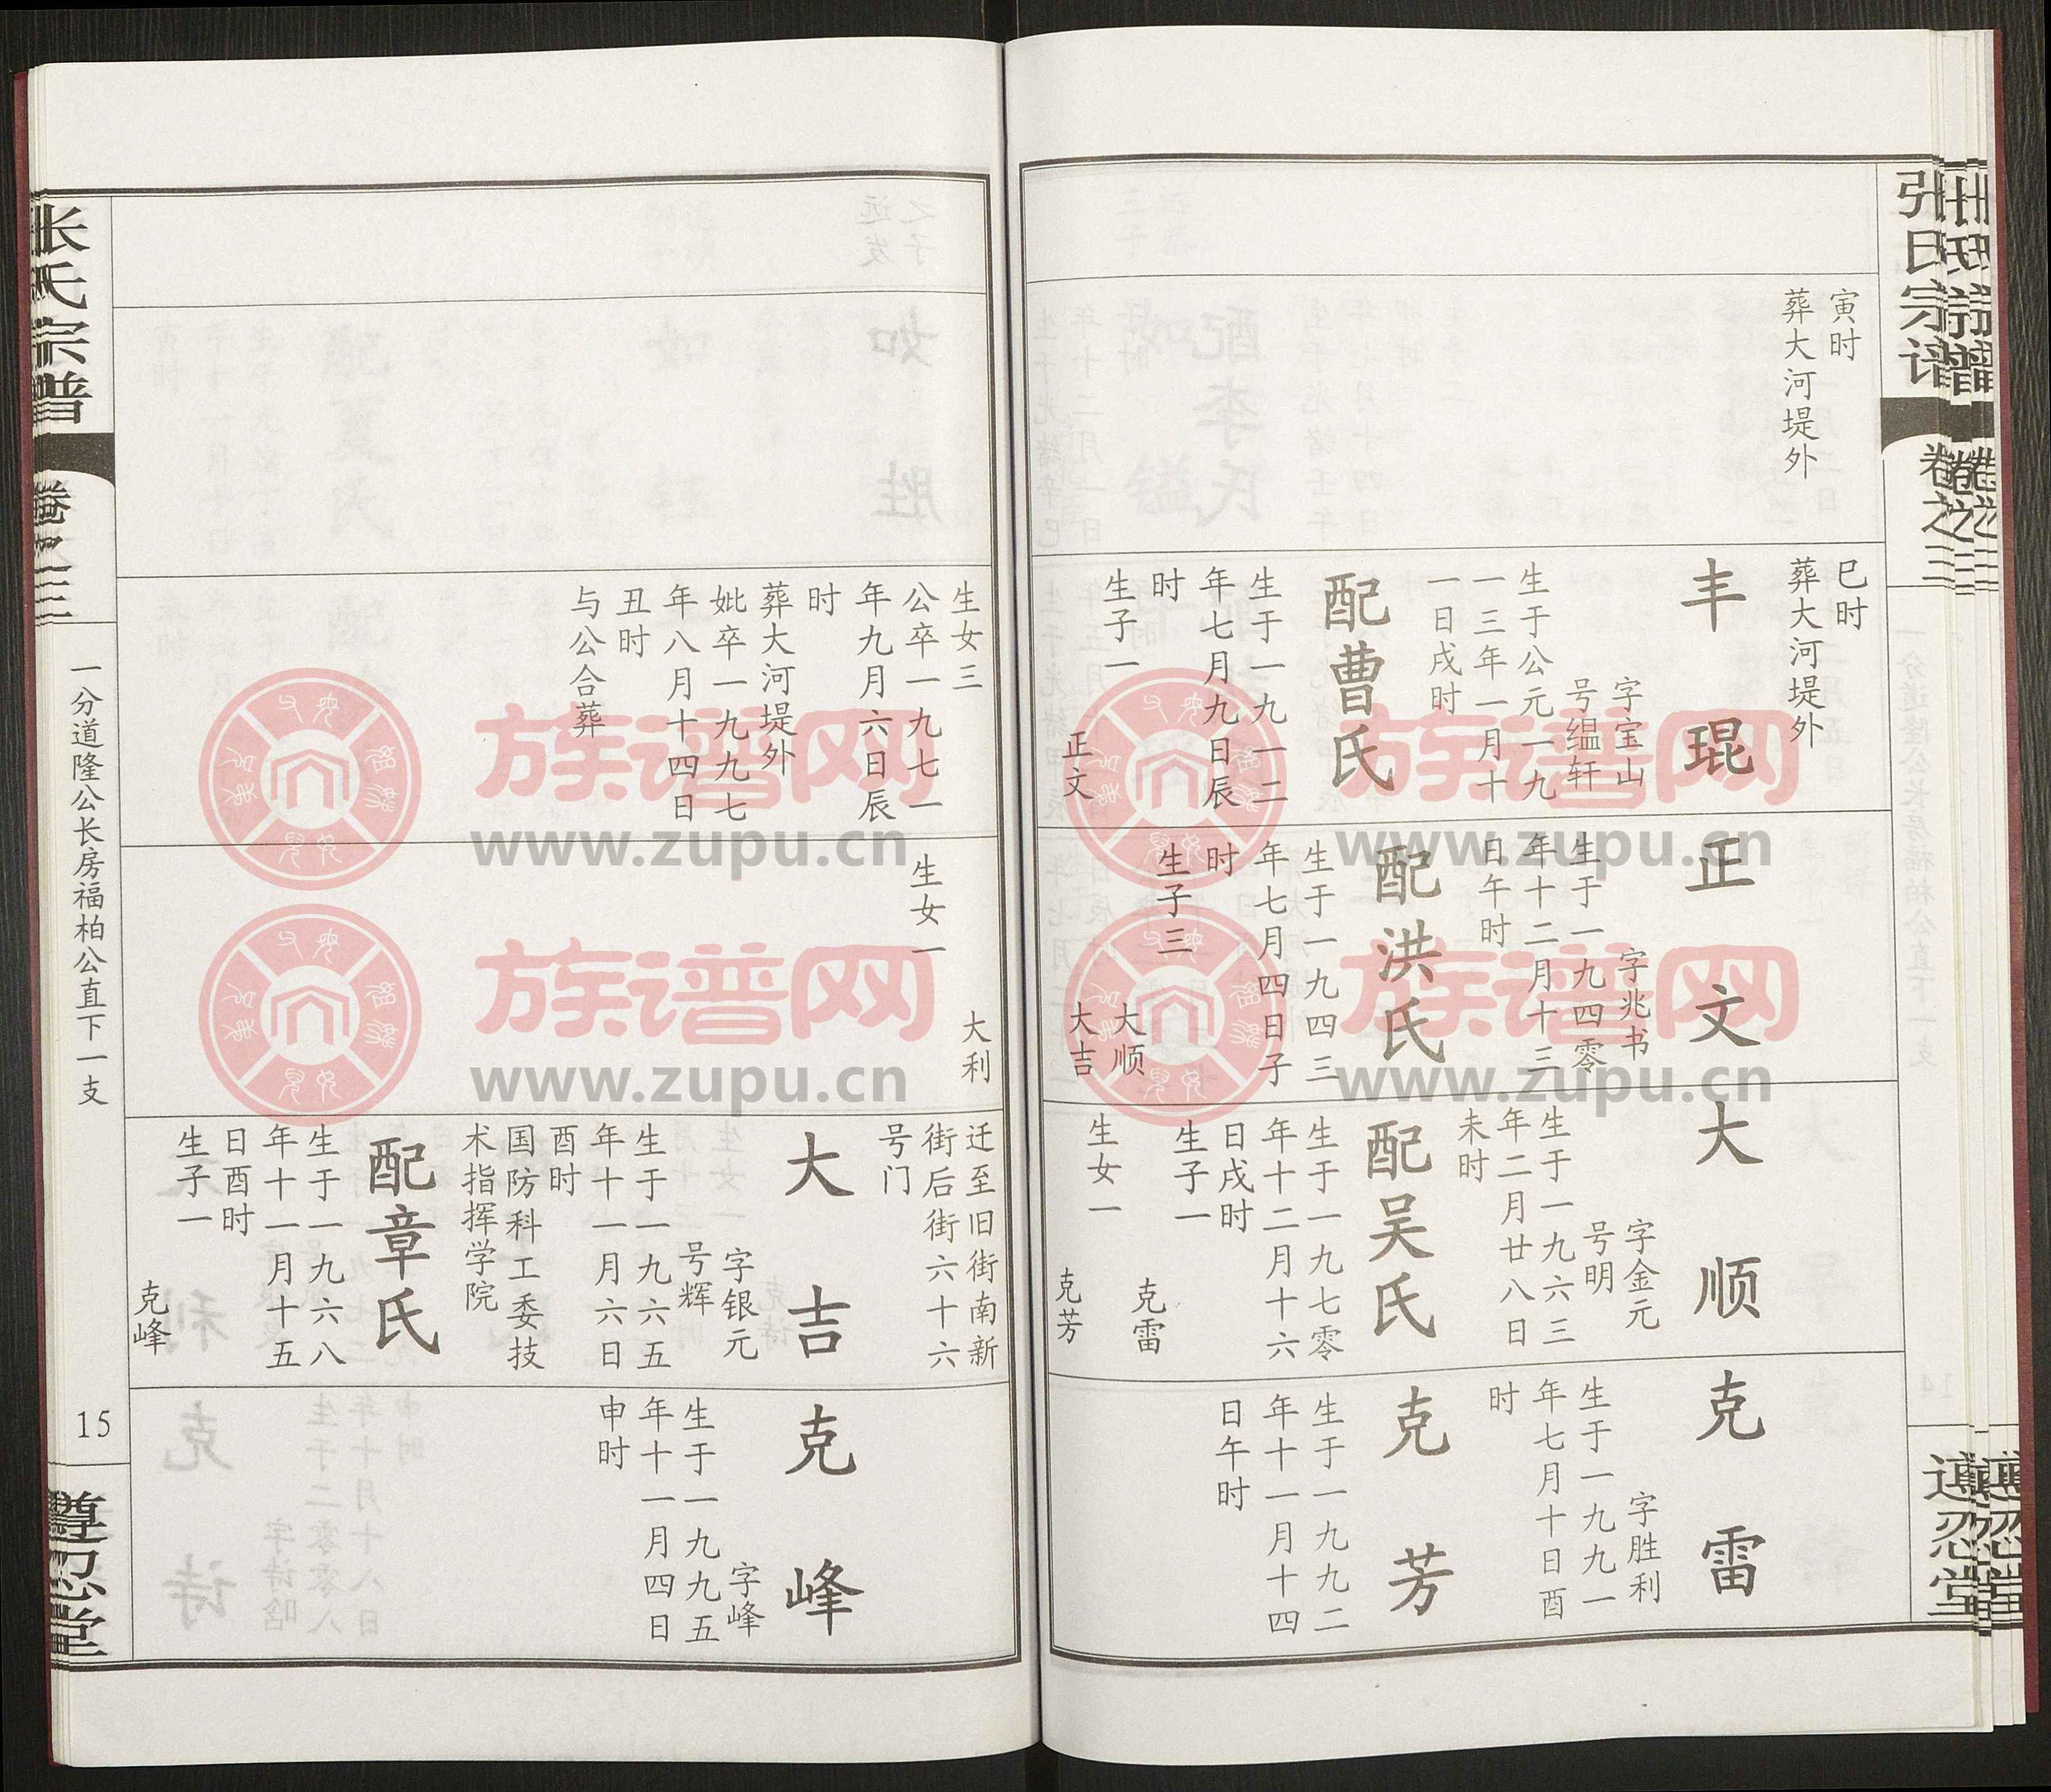 张氏宗谱
卷之三
遵忍堂
寅时
葬大河堤外
巳时
葬大河堤外
丰琨
字宝山
号缊轩
生于公元一九
一三年一月十
一日戌时
配曹氏
生于一九一二
年七月九日辰
时
生子一
正文
正文
字兆书
生于一九四零
年十二月十三
日午时
配洪氏
生于一九四三
年七月四日子
时
生子三
大顺
大吉
大顺
字金元
号明
生于一九六三
年二月廿八日
未时
配吴氏
生于一九七零
年十二月十六
日戌时
生子一
克雷
生女一
克芳
克雷
字胜利
生于一九九一
年七月十日酉
时
克芳
生于一九九二
年十一月十四
日午时
生女三
公卒一九七一
年九月六日辰
时
葬大河堤外
妣卒一九九七
年八月十四日
丑时
与公合葬
大利
生女一
迁至旧街南新
街后街六十六
号门
大吉
字银元
号辉
生于一九六五
年十一月六日
酉时
国防科工委技
术指挥学院
配章氏
生于一九六八
年十一月十五
日酉时
生子一
克峰
克峰
字峰
生于一九九五
年十一月四日
申时
张氏宗谱
卷之三
一分道隆公长房福柏公直下一支
15
遵忍堂
族谱网
www.zupu.cn
族谱网
www.zupu.cn
族谱网
www.zupu.cn
族谱网
www.zupu.cn